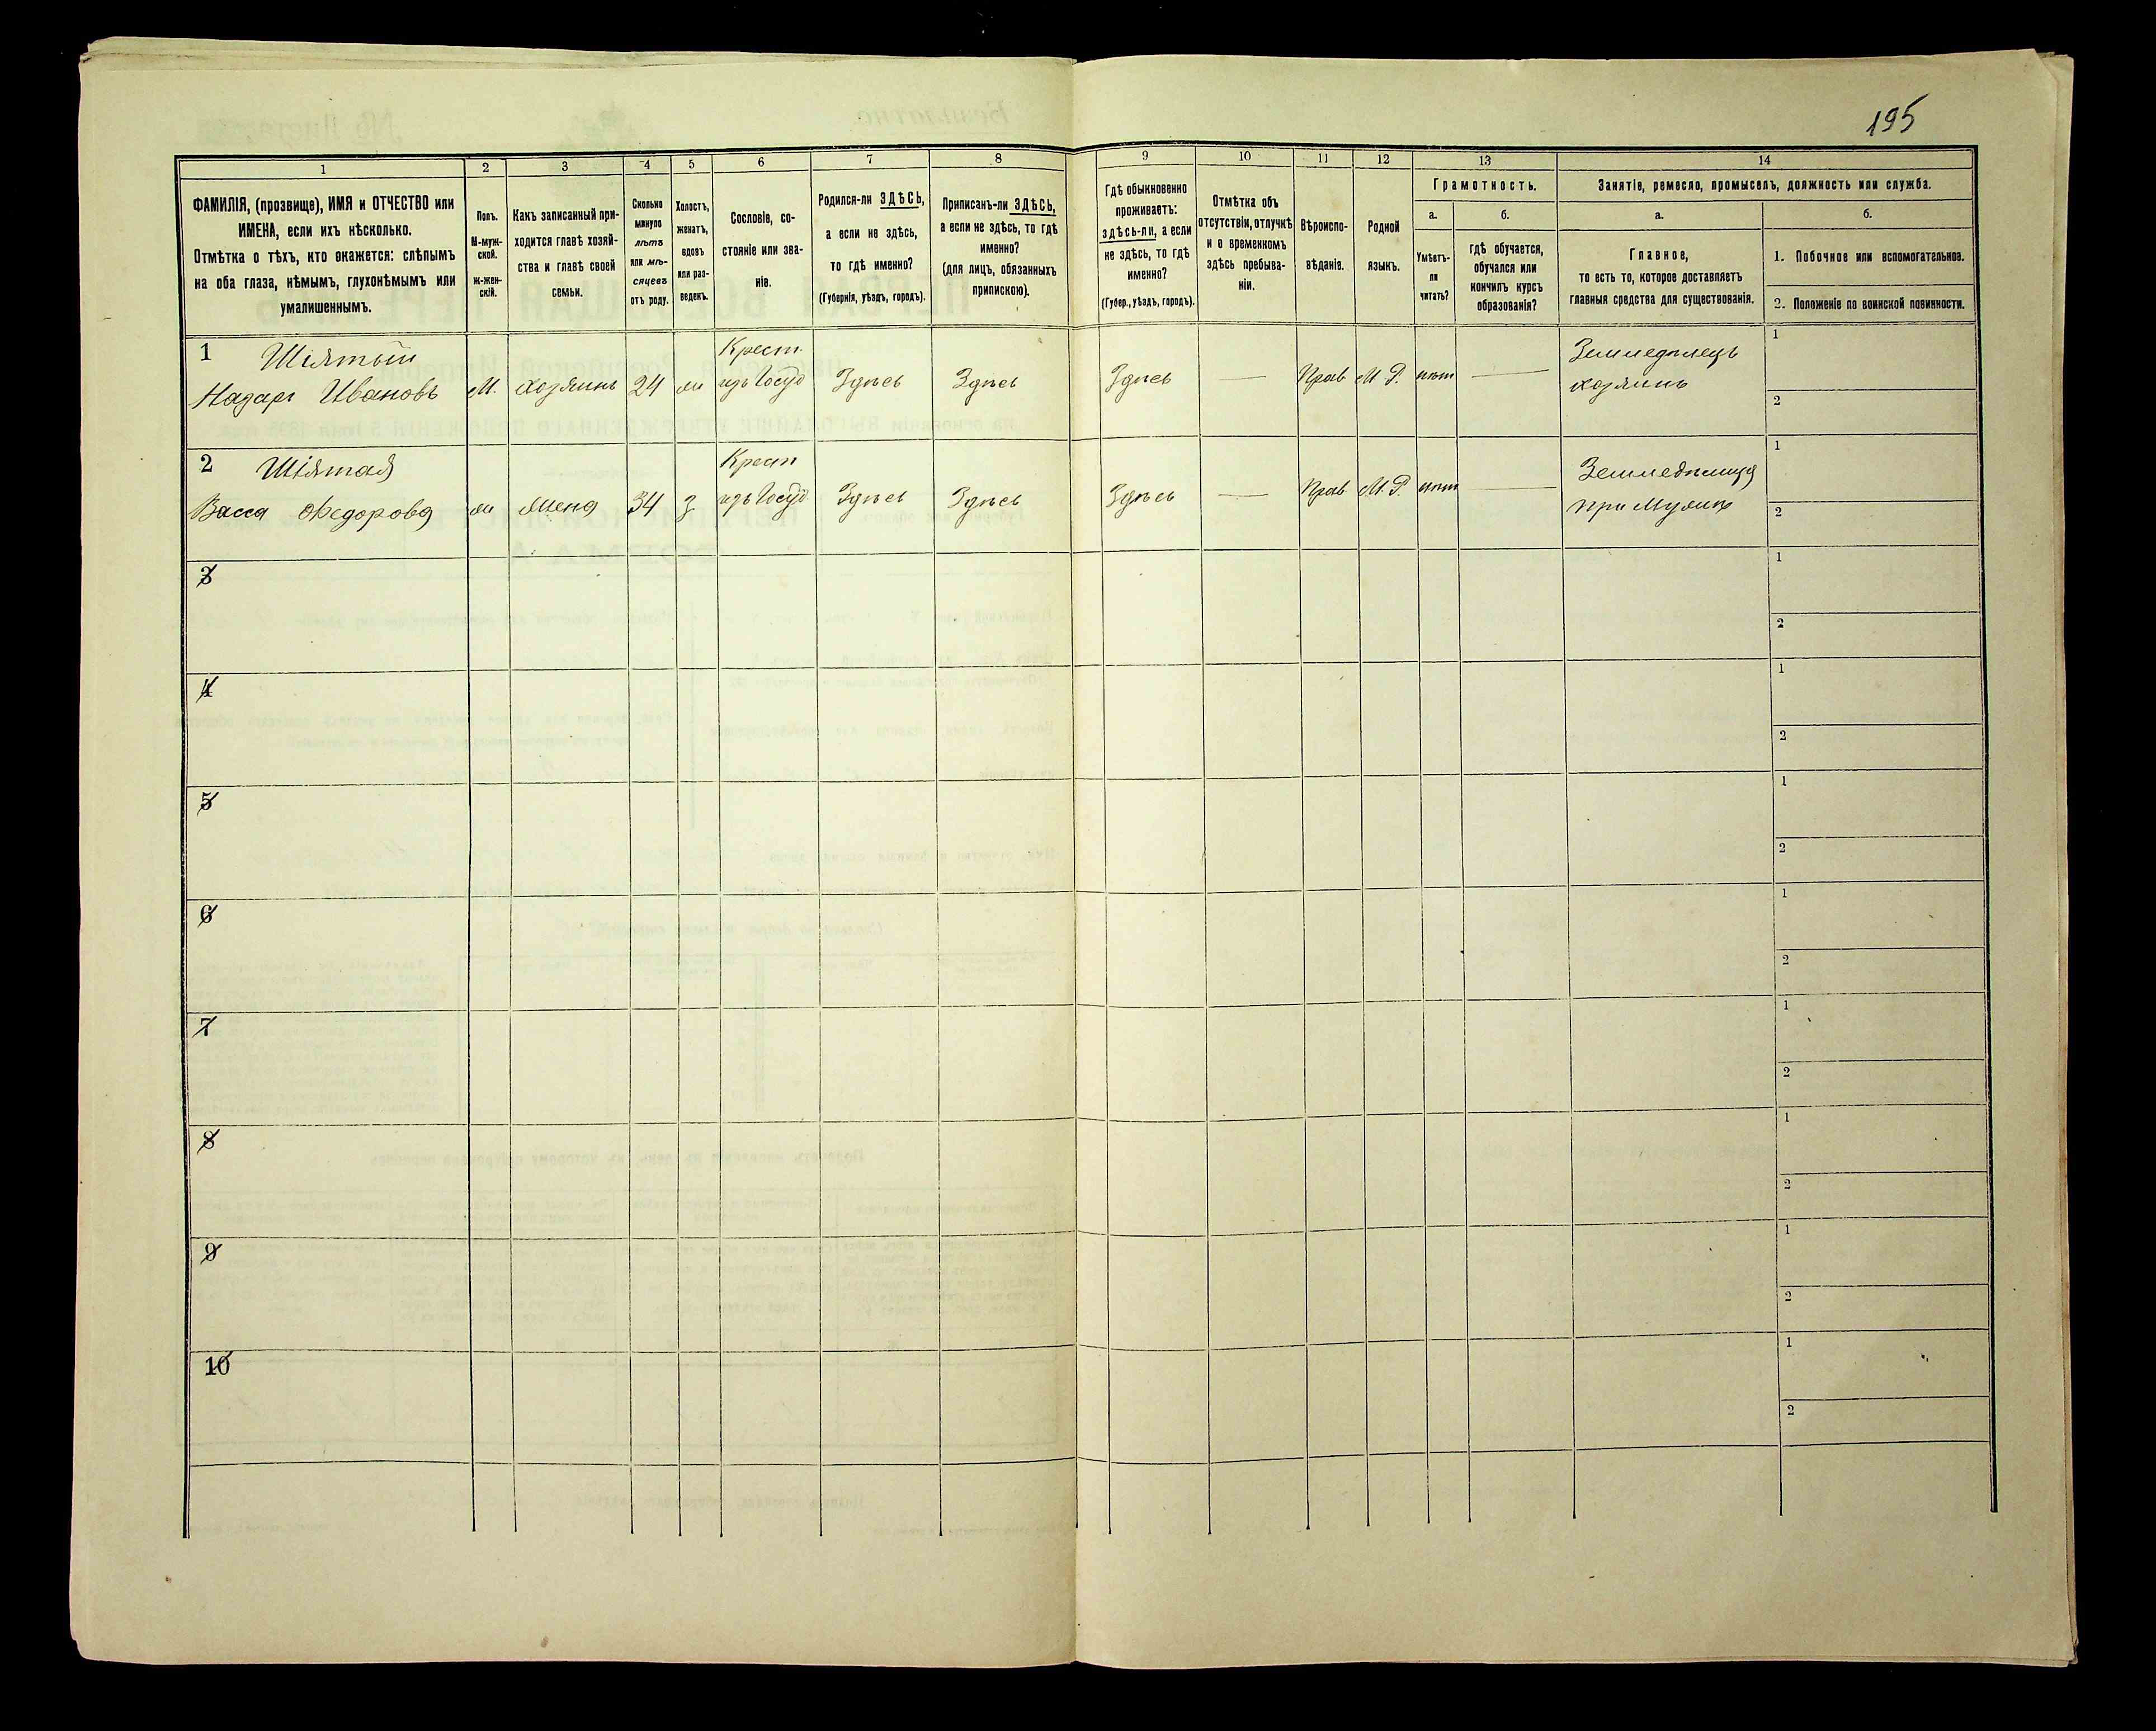 195
1 2 3 4 5 6 7 8 9 10 11 12 13 14
ФАМИЛІЯ, (прозвище), ИМЯ и ОТЧЕСТВО или
ИМЕНА, если ихъ нѣсколько.
Отмѣтка о тѣхъ, кто окажется: слѣпымъ
на оба глаза, нѣмымъ, глухонѣмымъ или
умалишеннымъ.
Полъ.
М-муж-
ской.
ж-жен-
скій.
Какъ записанный при-
ходится главѣ хозяй-
ства и главѣ своей
семьи.
Сколько
минуло
лѣтъ
или мѣ-
сяцевъ
отъ роду.
Холостъ,
женатъ,
вдовъ
или раз-
веденъ.
Сословіе, со-
стояніе или зва-
ніе.
Родился-ли ЗДѢСЬ,
а если не здѣсь,
то гдѣ именно?
(Губернія, уѣздъ, городъ).
Приписанъ-ли ЗДѢСЬ,
а если не здѣсь, то гдѣ
именно?
(для лицъ, обязанныхъ
припискою).
Гдѣ обыкновенно
проживаетъ:
здѣсь-ли, а если
не здѣсь, то гдѣ
именно?
(Губер., уѣздъ, городъ).
Отмѣтка объ
отсутствіи, отлучкѣ
и о временномъ
здѣсь пребыва-
ніи.
Вѣроиспо-
вѣданіе.
Родной
языкъ.
Грамотность.
а.
Умѣетъ-
ли
читать?
б.
гдѣ обучается,
обучался или
кончилъ курсъ
образованія?
Занятіе, ремесло, промыселъ, должность или служба.
а.
Главное,
то есть то, которое доставляетъ
главныя средства для существованія.
б.
1. Побочное или вспомогательное.
2. Положеніе по воинской повинности.
1 Шіятый Крест. Земледѣлецъ 1
Назаръ Ивановъ М. хозяинъ 24 ж изъ Госуд Здѣсь Здѣсь Здѣсь — Прав М.Р. нѣт — хозяинъ 2
2 Шіятая Крест Земледѣлица 1
Васса Федорова ж жена 34 з изъ Госуд Здѣсь Здѣсь Здѣсь — Прав М.Р. нѣт — при Мужѣ 2
3 1
2
4 1
2
5 1
2
6 1
2
7 1
2
8 1
2
9 1
2
10 1
2